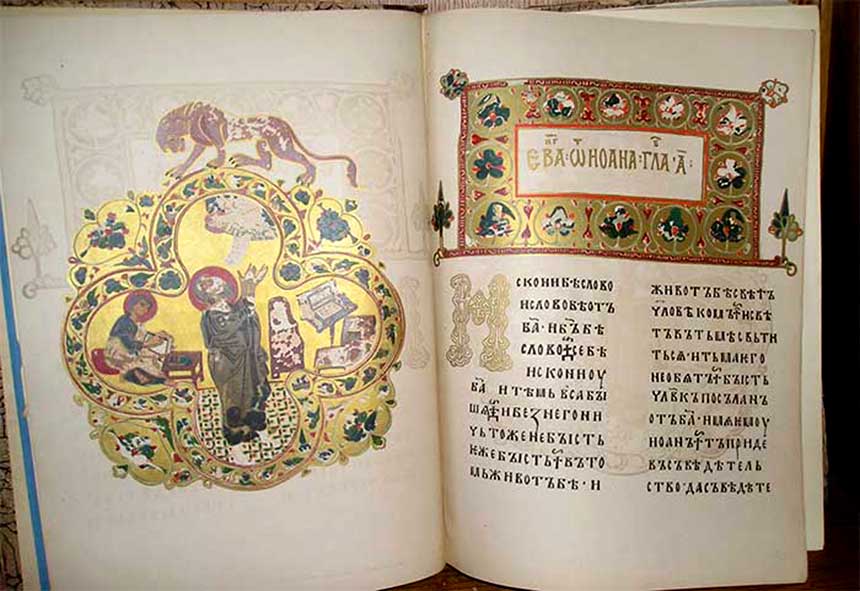 ЕВАⷢ҇·Ѿ ИОАНА·ГЛАⷡ҇·А҃:
ИСКОНИБѢСЛОВО
ИСЛОВОБѢОТЪ
Б҃А·ИБ҃ЪБѢ
СЛОВО⁘СЕБѢ
ИСКОНИОУ
Б҃А ИТѢМЬВЬСАБЫ
ШѦ⁘ИБЕЗНЕГОНИ
ЧЬТОЖЕНЕБЫСТЬ
ѤЖЕБЫСТЬ⁘ВЪТО
МЬЖИВОТЪБѢ·И
ЖИВОТЪБѢСВѢТЪ
ЧЛОВѢКОМЪ⁘ИСВѢ
ТЪВЪТЬМѢСВЬТИ
ТЬСѦ·ИТЬМАѤГО
НЕОБѦТЪ⁘БЫСТЬ
ЧЛ҃ВКЪПОСЪЛАНЪ
ОТЪБ҃А·ИМѦѤМОУ
ИОАНЪ⁘ТЪПРИДЕ
ВЪСЪВѢДѢТЕЛЬ
СТВО·ДАСЪВѢДѢТЕ